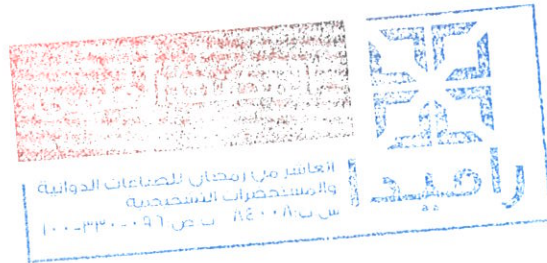 راميدا
العاشر من رمضان للصناعات الدوائية
والمستحضرات التشخيصية
س.ت: ٨٤٠٠٨ ب.ض ٠٩٦-٣٣٠-١٠٠